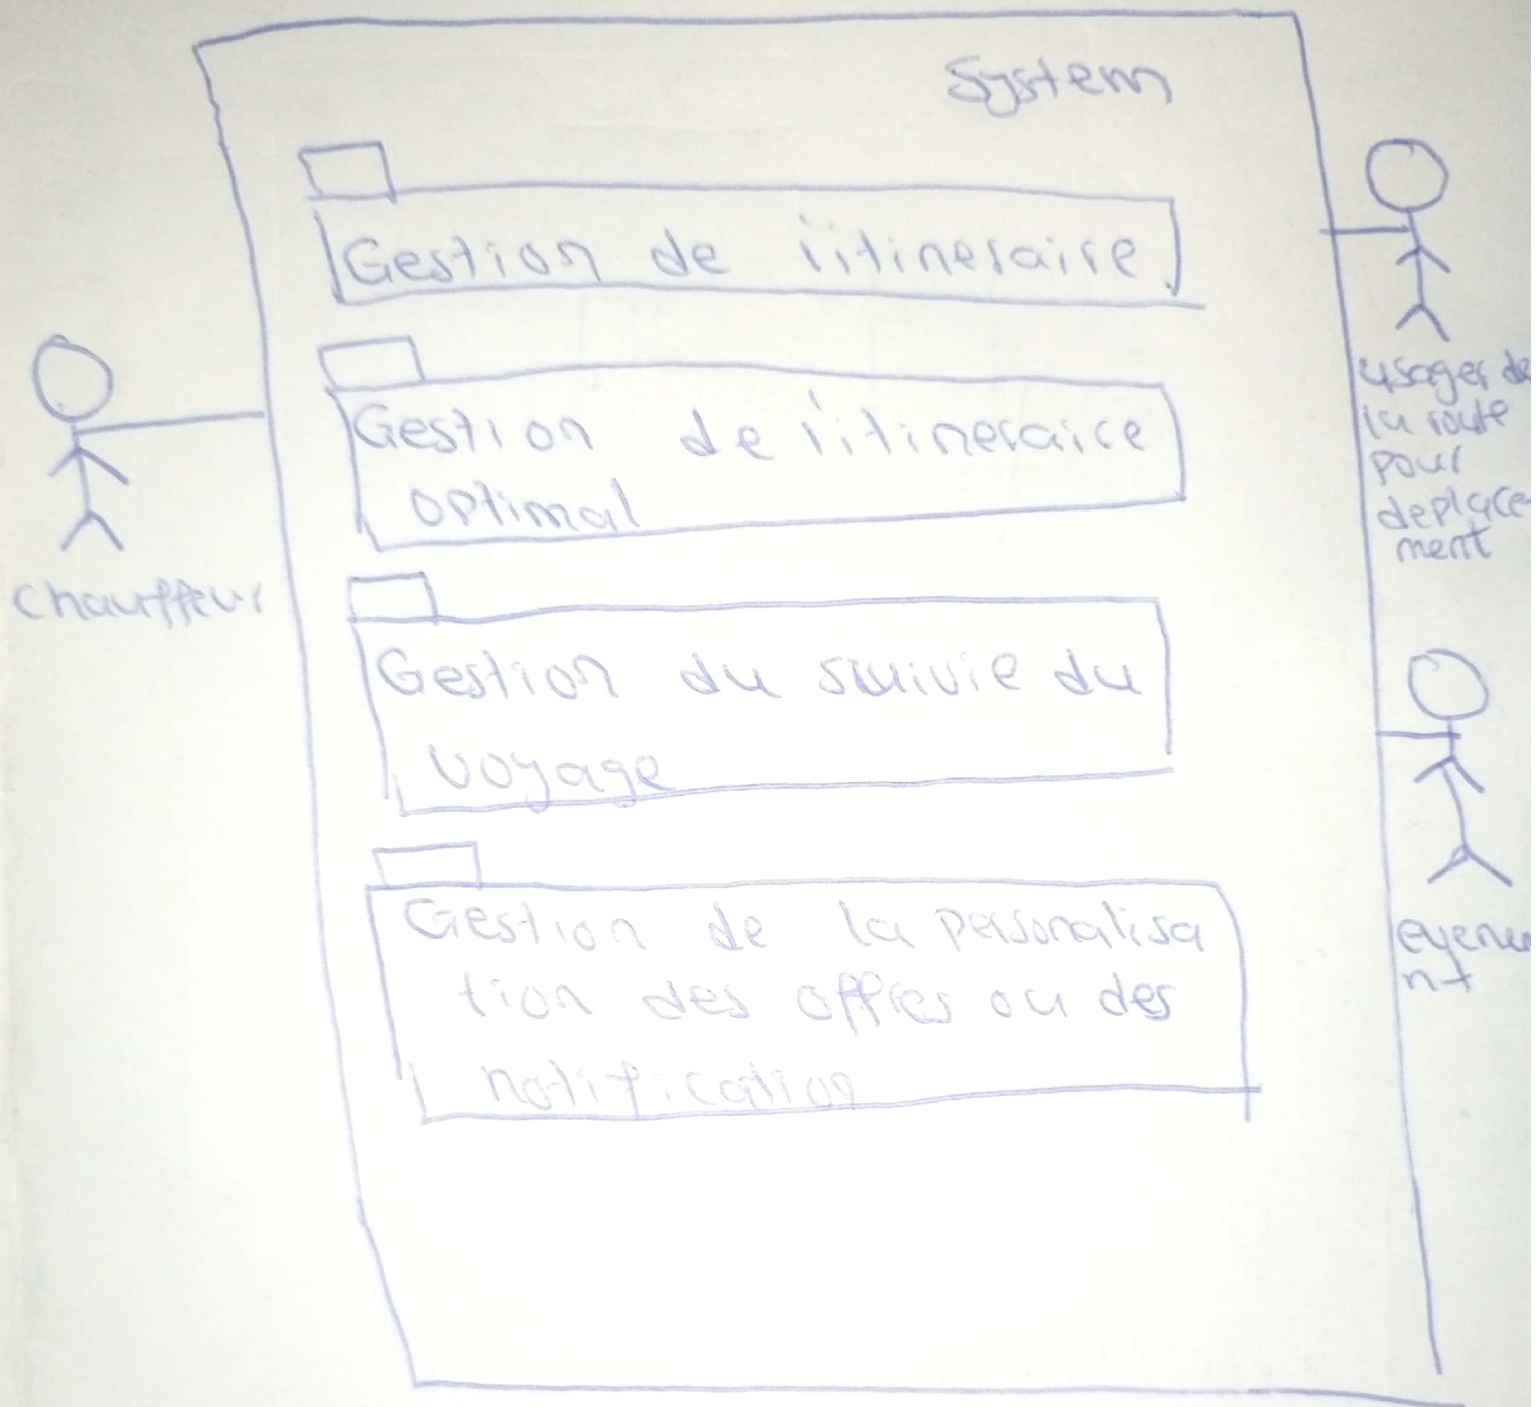 System
Gestion de l'itineraire
Gestion de l'itineraire
optimal
Gestion du suivie du
voyage
Gestion de la personalisa
tion des offres ou des
notification
chauffeur
usager de
la route
pour
deplace
ment
evenem
nt